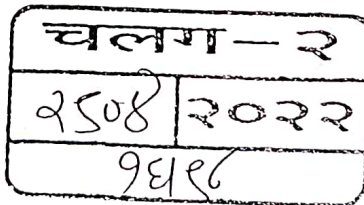 चलग - २
२५०४ २०२२
१६/९८